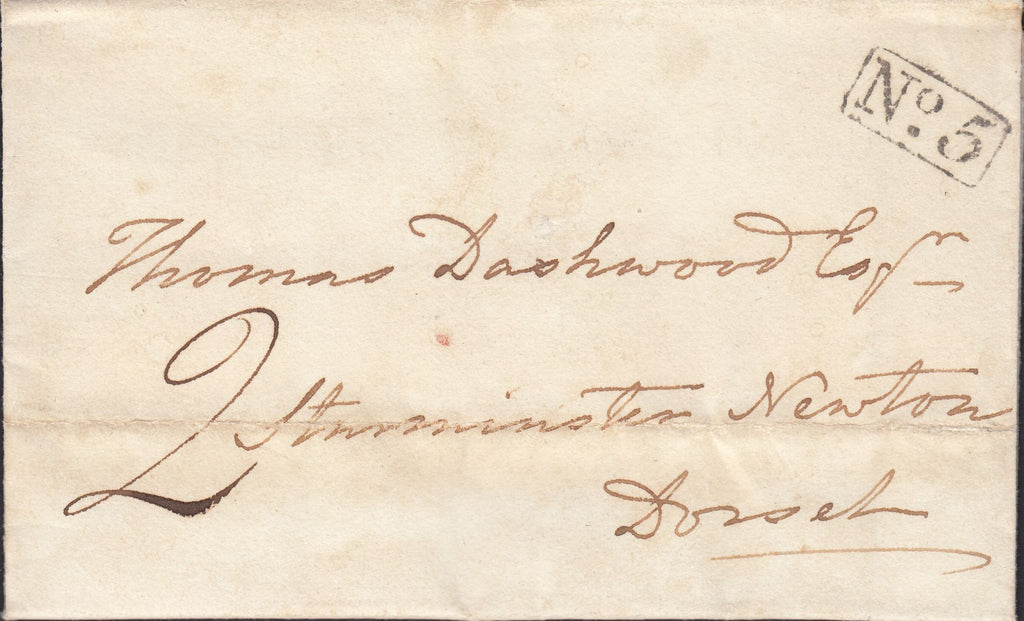 No. 5
Thomas Dashwood Esqr
2
Sturminster Newton
Dorset